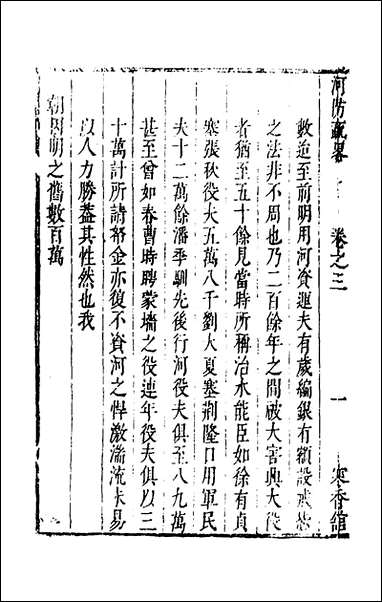 河防疏畧 卷之三 一 寒香館
數迨至前明用河資遥夫有歲編銀有額設戒
之法非不周也乃二百餘年之間被大害興大役
者猶至五十餘見當時所稱治水能臣如徐有貞
塞張秋役夫五萬八千劉大夏塞荆隆口用軍民
夫十二萬餘潘季馴先後行河役夫俱至八九萬
甚至曾如春曹時聘蒙墻之役連年役夫俱以三
十萬計所請帑金亦復不資河之悍激湍流未易
以人力勝蓋其性然也我
朝因明之舊數百萬